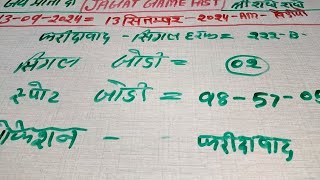 जय माता दी [JAGAT GAME HST] श्री राधे राधे
13-09-2024 = 13 सितम्बर - 2024 - AM -
फरीदाबाद - सिंगल हरूफ = 222-B-
सिंगल जोडी = 02
स्पोट जोडी = 98-57-05
लोकेशन - - फरीदाबाद